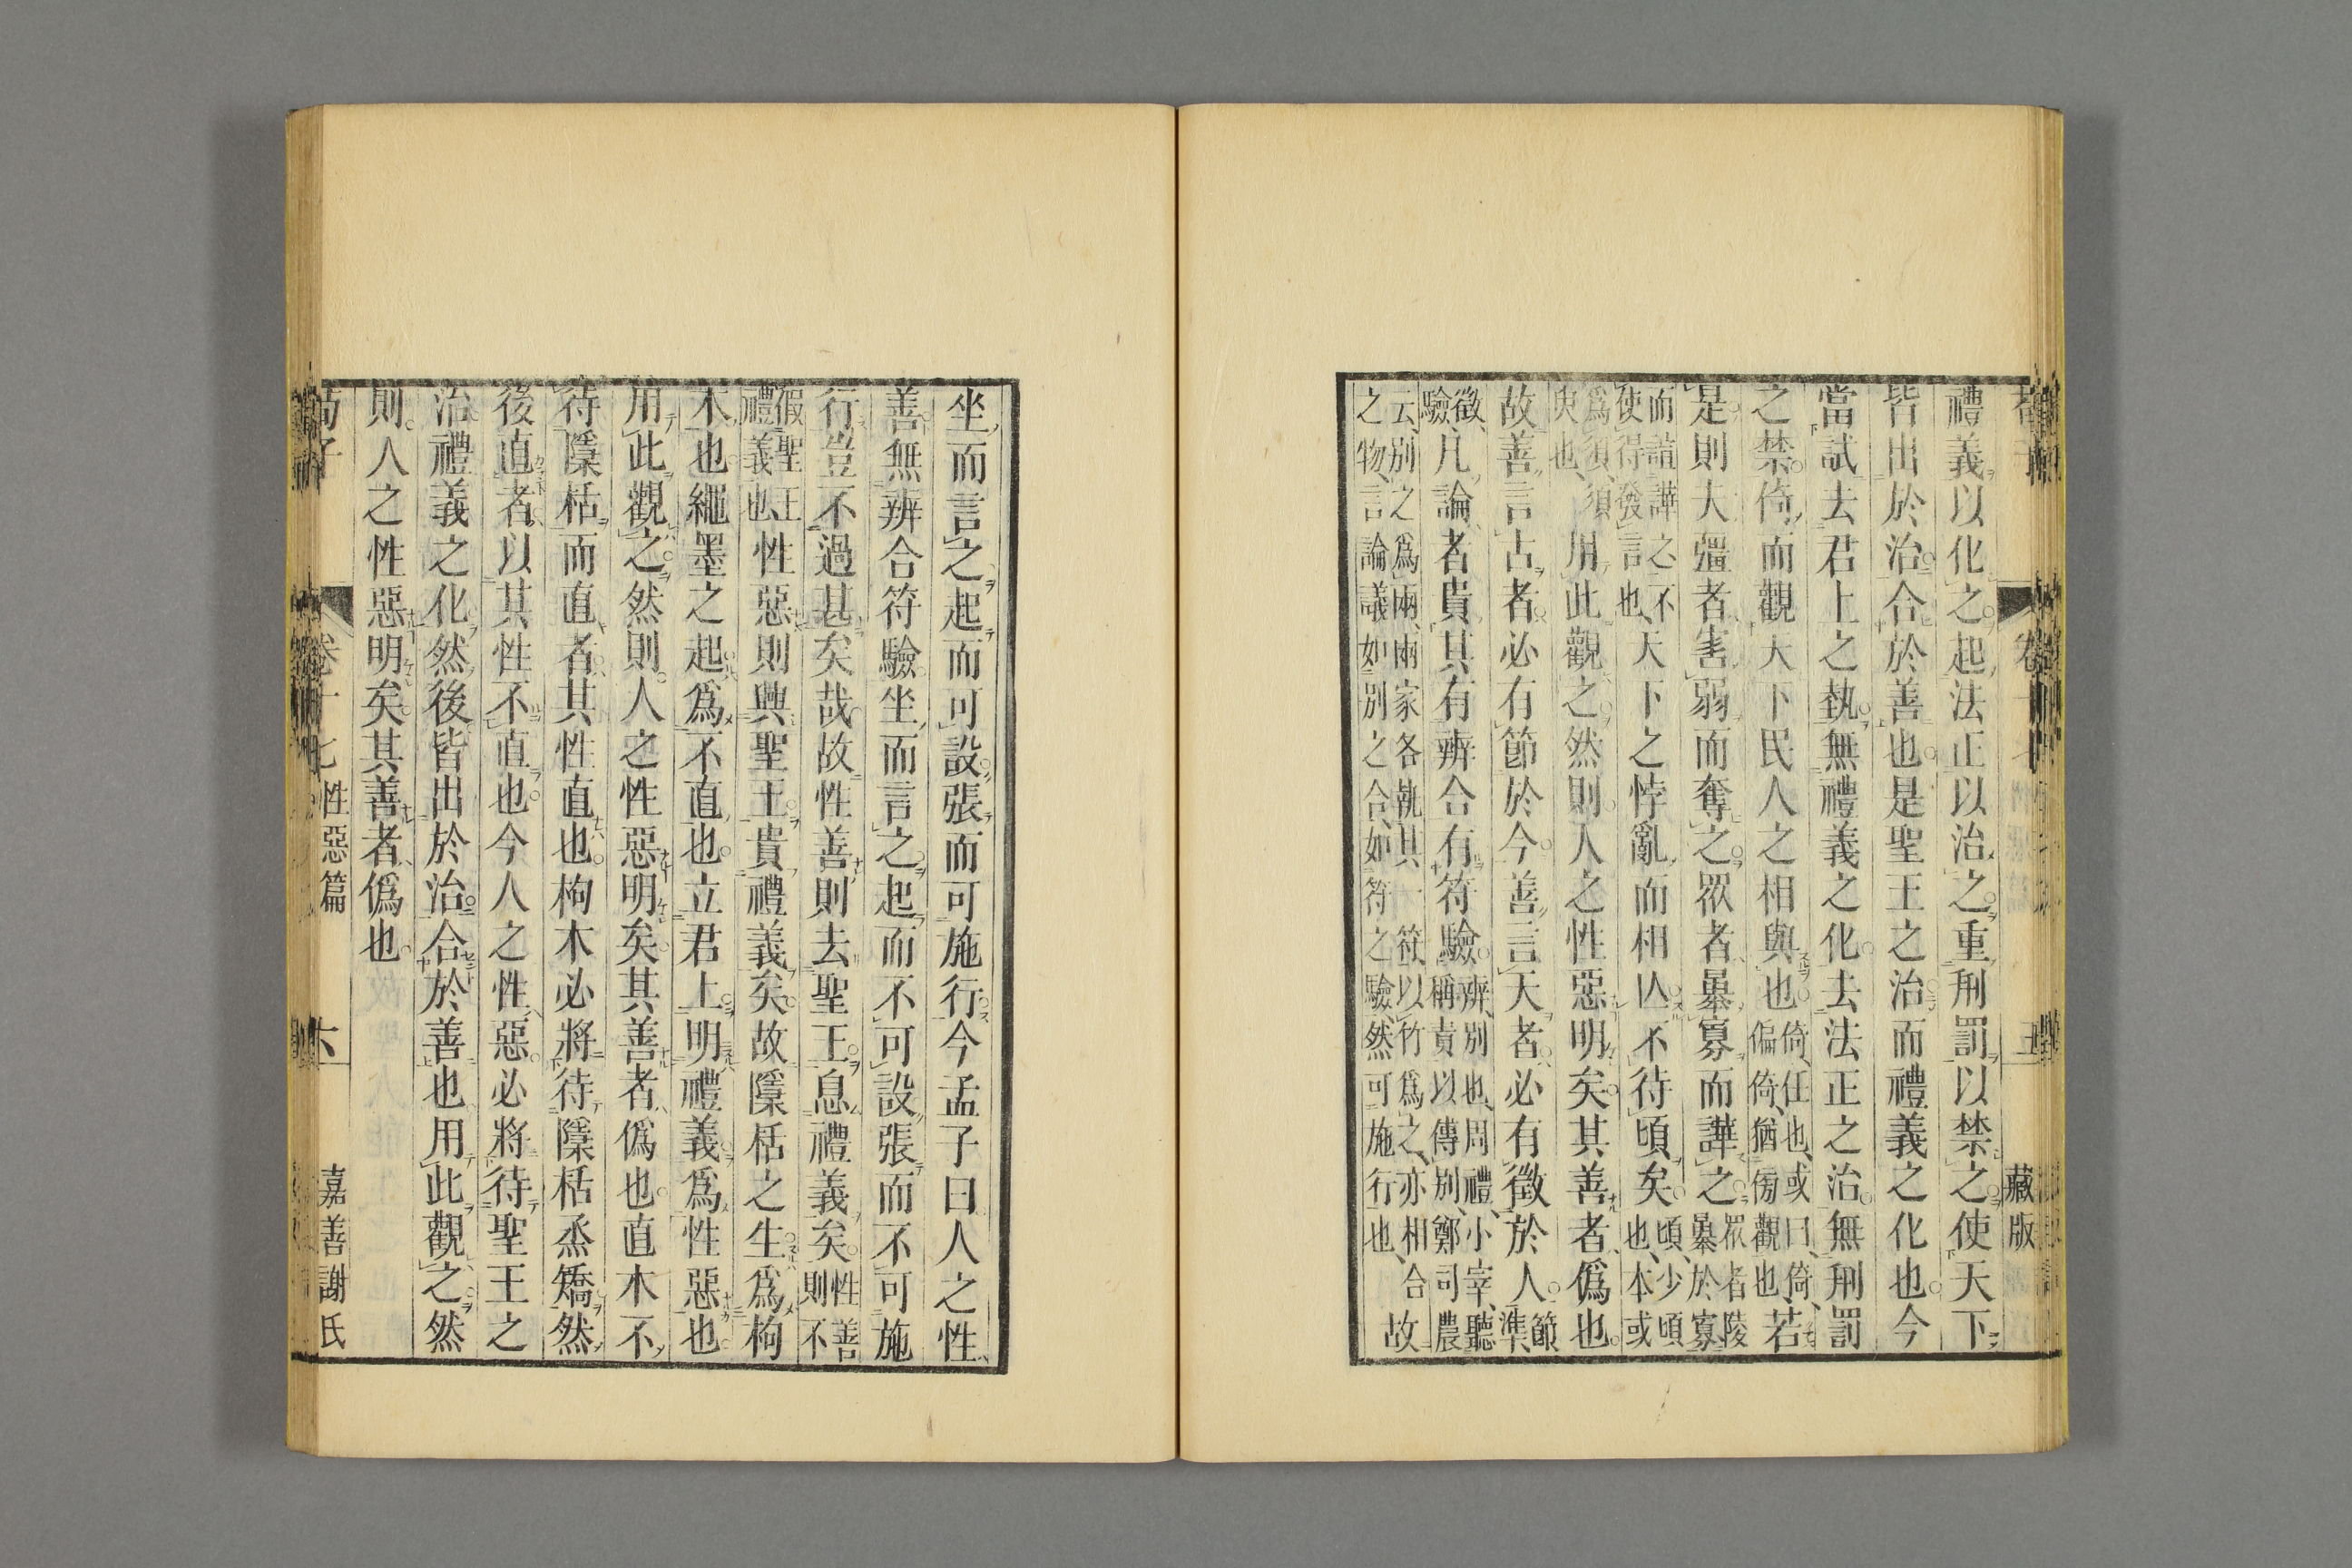 禮義以化之起法正以治之重刑罰以禁之使天下
皆出於治合於善也是聖王之治而禮義之化也今
當試去君上之埶無禮義之化去法正之治無刑罰
之禁倚而觀天下民人之相與也倚任也或曰倚偏倚猶傍觀也若
是則夫彊者害弱而奪之眾者暴寡而譁之眾者陵暴於寡
而諠譁之不使得發言也天下之悖亂而相亡不待頃矣頃少頃也本或
爲須須須臾也用此觀之然則人之性惡明矣其善者僞也
故善言古者必有節於今善言天者必有徵於人節準
徵驗凡論者貴其有辨合有符驗辨別也周禮小宰聽稱責以傅別鄭司農
云別之爲兩兩家各執其一符以竹爲之亦相合之物言論議如別之合如符之驗然可施行也故
坐而言之起而可設張而可施行今孟子曰人之性
善無辨合符驗坐而言之起而不可設張而不可施
行豈不過甚矣哉故性善則去聖王息禮義矣性善則不
假聖王禮義也性惡則與聖王貴禮義矣故檃栝之生爲枸
木也繩墨之起爲不直也立君上明禮義爲性惡也
用此觀之然則人之性惡明矣其善者僞也直木不
待檃栝而直者其性直也枸木必將待檃栝烝矯然
後直者以其性不直也今人之性惡必將待聖王之
治禮義之化然後皆出於治合於善也用此觀之然
則人之性惡明矣其善者僞也
荀子 卷十七 性惡篇 六 嘉善謝氏
卷十七 五 藏版